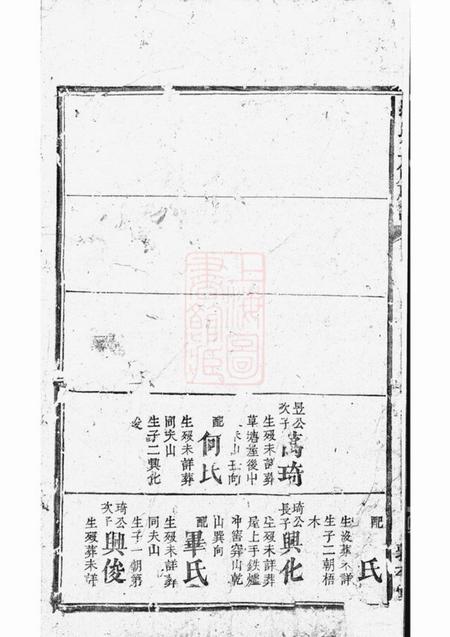 昱公次子萬琦
生歿未詳葬
草塘屋後中
山向
配何氏
生歿未詳葬
同夫山
生子二興化
俊
配 氏
生歿葬未詳
生子二朝梧
木
琦公長子興化
生歿未詳葬
屋上手鉄爐
冲窨穽山乾
山巽向
配畢氏
生歿未詳葬
同夫山
生子一朝第
琦公次子興俊
生歿葬未詳